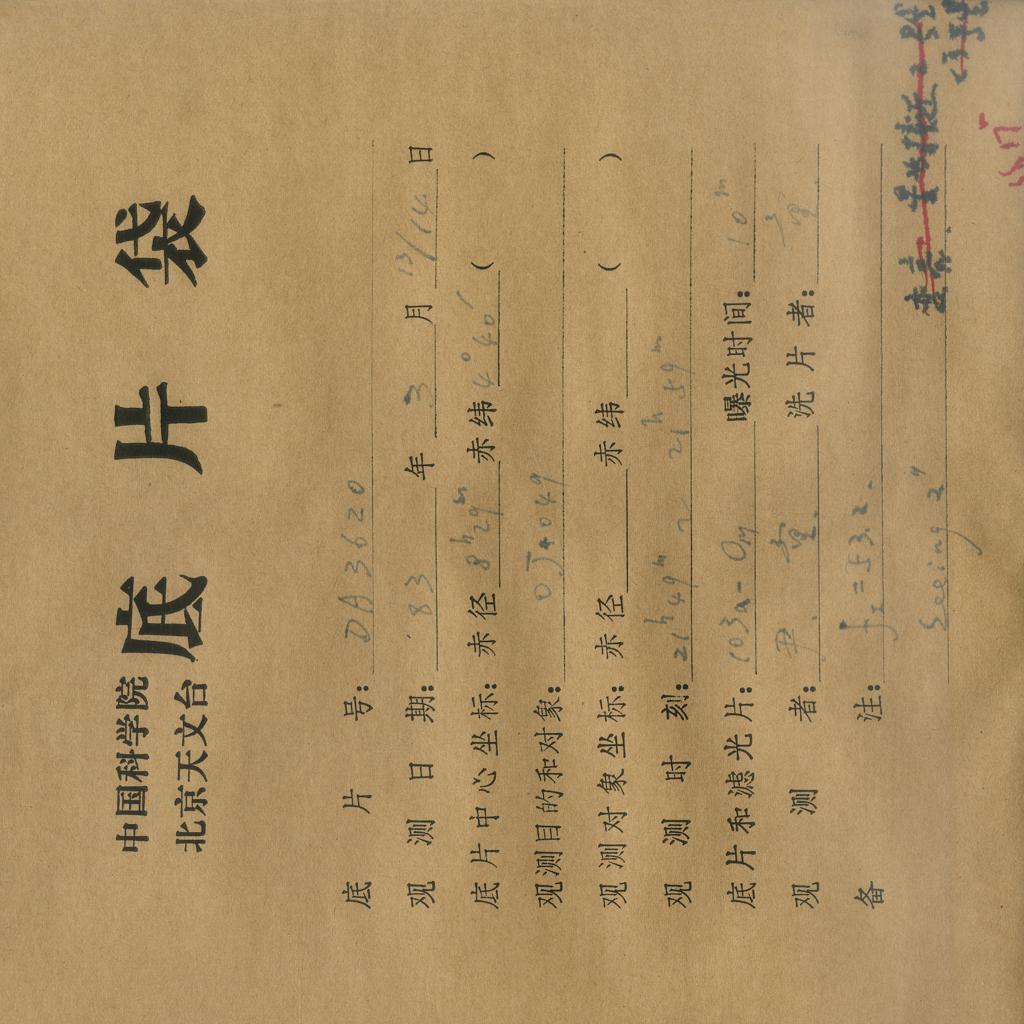 中国科学院
北京天文台
底片袋
底片号: DA3620
观测日期: 83年3月13/14日
底片中心坐标: 赤径 8h29m 赤纬 4°40′ ( )
观测目的和对象: OJ+049
观测对象坐标: 赤径 赤纬 ( )
观测时刻: 21h49m ~ 21h59m
底片和滤光片: 103a-O 曝光时间: 10m
观测者: 尹 洗片者:
备注: f=53.2.
Seeing 2″